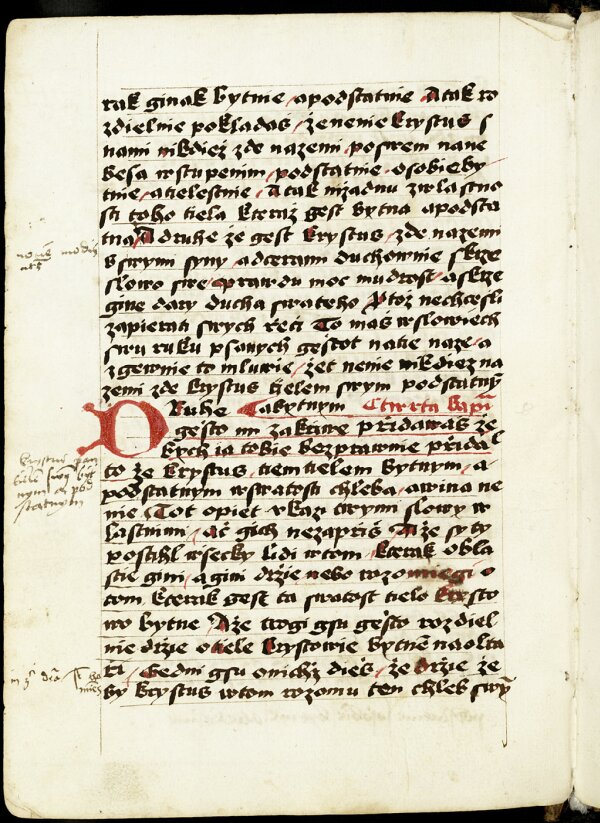 rak ginak bytnie apodstatnie Atak ro
zdielnie pokladas zenenie krystus s
nami nikdiez zde nazemi posrem nane
besa wstupenim podstatnie osobieby
tnie atielestnie Atak nizadnu zwlastno
sti toho tiela kteraz gest bytna apodsta
tna A druhe ze gest krystus zde nazemi
sswymi syny adcerami duchownie skrze
slowo swe prawdu moc mudrost askrze
gine dary ducha swateho Ptoz nechcesli
zapierati swych reci To mas wslowiech
swu ruku psanych gestot natie naze a
zgewnie to mluwie zet nenie nikdiez na
zemi zde krystus tielem swym podstatny
DRuhe Takytnym Ctwrta kapi
gesto mi zakriwe pridawas ze
bych ia tobie bezprawnie pridal
to ze krystus tiemtielem bytnym a
podstatnym wswatosti chleba awina ne
nie Tot opiet vkazi twymi slowy w
lastnimi ac gich nezapris A ze sy ty
postihl wsecky lidi wtom kterak obla
stie gini agini drzie nebo rozomiegi o
tom kterak gest ta swatost tielo krysto
wo bytne Aze trogi gsu gesto rozdiel
nie drzie otiele krystowie bytnem naolta
ri Gedni gsu onichz dies ze drzie ze
by krystus wtom rozomu ten chleb swy